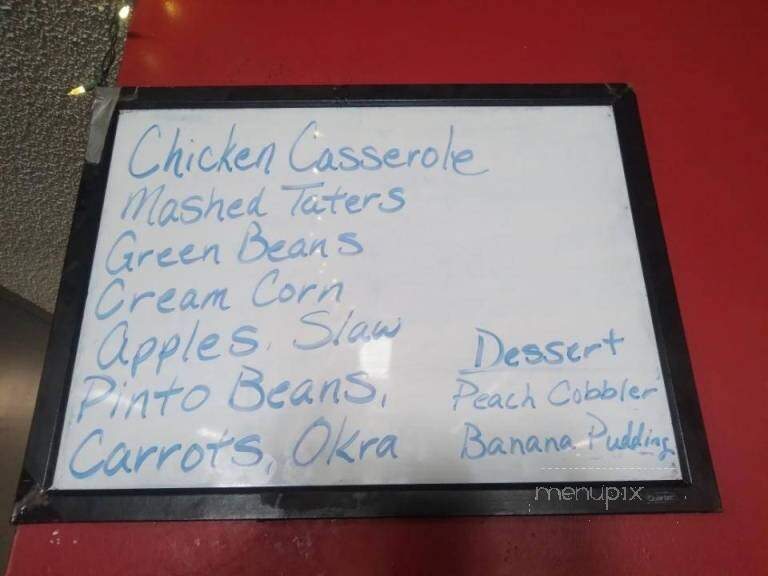 Chicken Casserole
Mashed Taters
Green Beans
Cream Corn
Apples, Slaw
Pinto Beans,
Carrots, Okra
Dessert
Peach Cobbler
Banana Pudding
menupix
Quartet